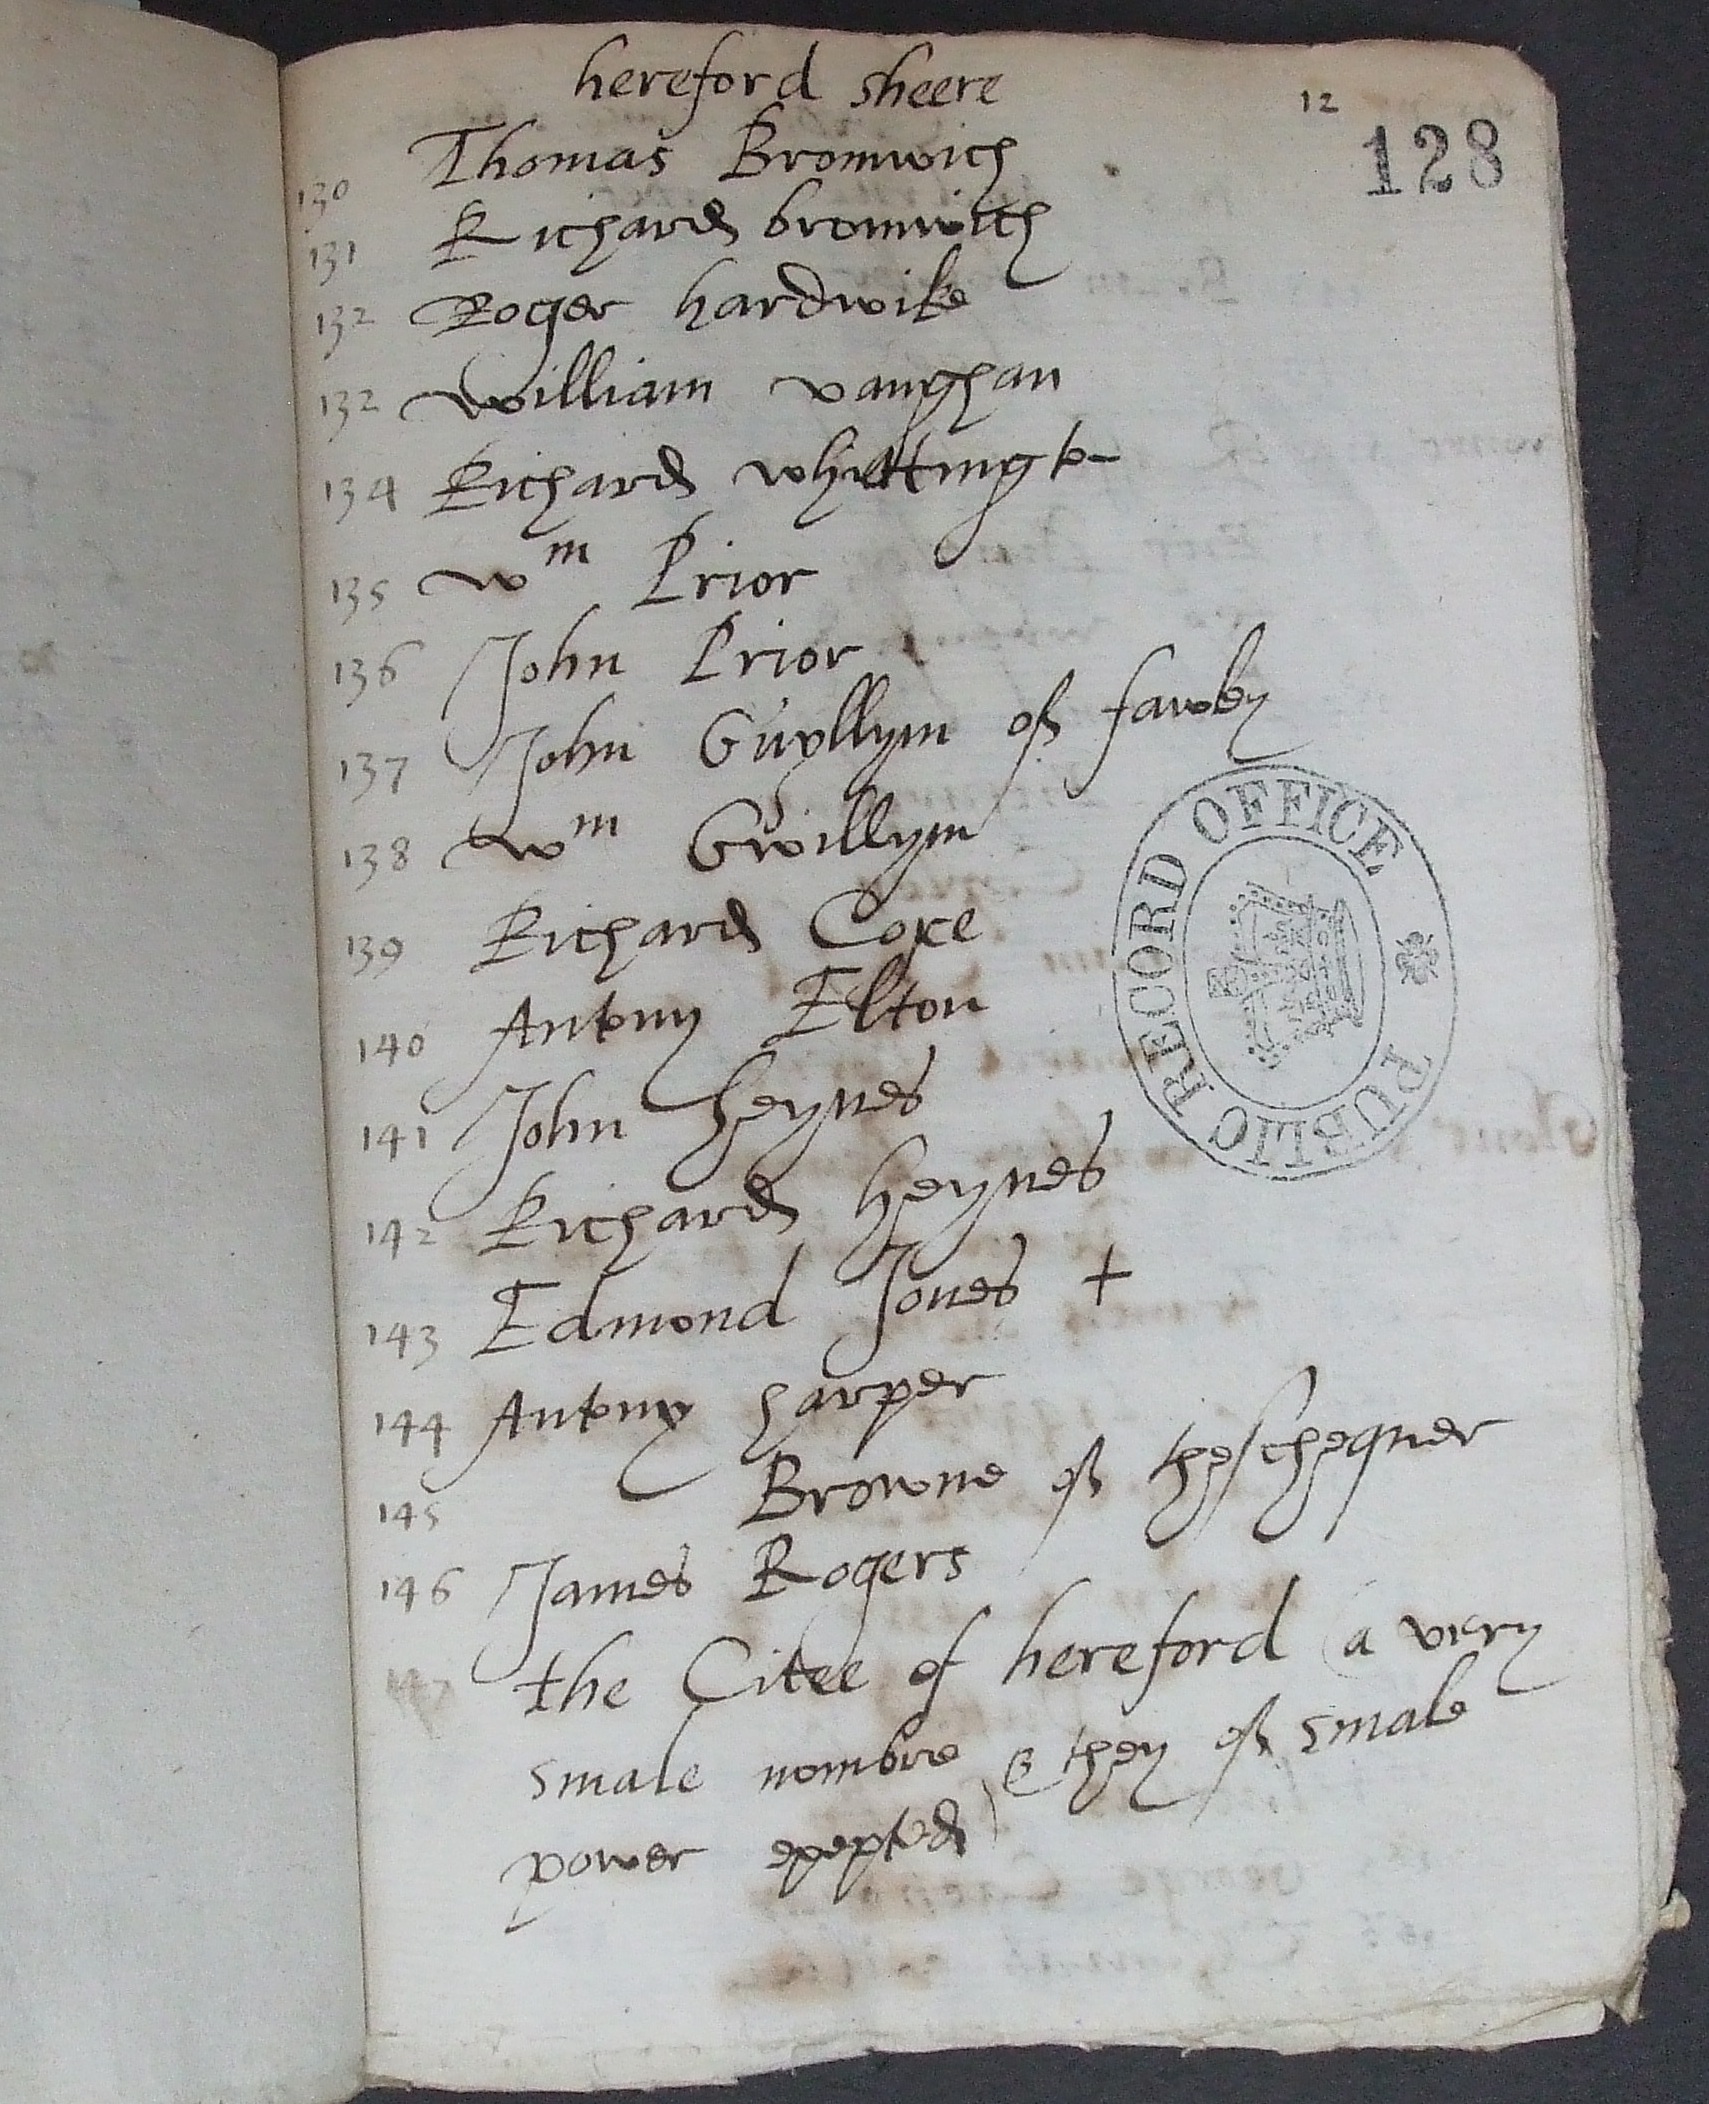 hereford sheere
12
128
130 Thomas Bromwich
131 Richard bromwich
132 Roger hardwike
132 William vaughan
134 Richard whittingto-
135 Wm Prior
136 John Prior
137 John Guyllym off fawley
138 Wm Gwillym
139 Richard Coxe
140 Antony Elton
141 John heynes
142 Richard heynes
143 Edmond Jones +
144 Antony harper
145 Browne off theschequer
146 James Rogers
147 the Citee of hereford (a very
smale nombre & they off smale
power excepted)
PUBLIC RECORD OFFICE